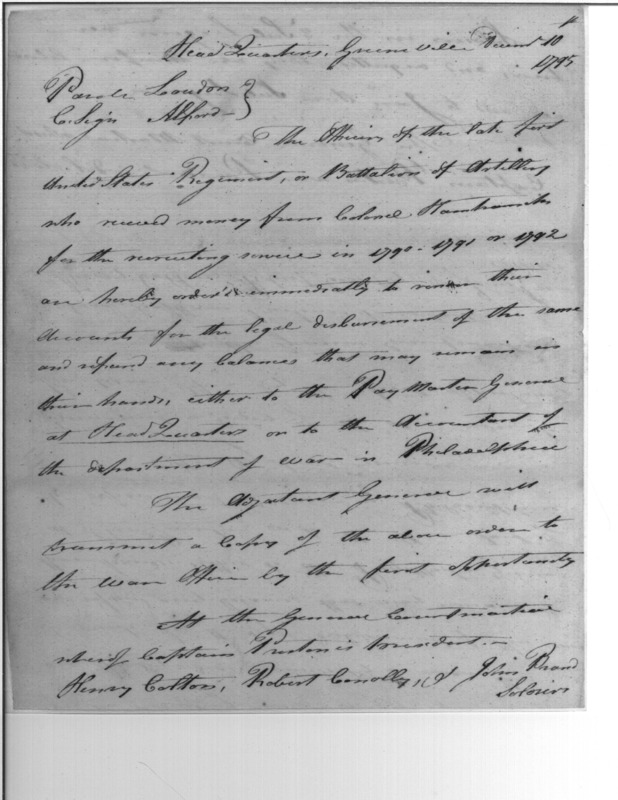 Head Quarters, Greene ville Decemr 10
1795
Parole Loudon
C. Sign Alford—
The Officers of the late first
United States Regiment, or Battalion of Artillery
who received money from Colonel Hamtramck
for the recruiting service in 1790 - 1791 or 1792
are hereby order'd immediatly to render their
Accounts for the legal disbursement of the same
and refund any balances that may remain in
their hands, either to the Pay Master General
at Head Quarters or to the Accountant of
the department of war in Philadelphia
The Adjutant General will
transmit a Copy of the above orders to
the war Office by the first oppertunity
At the General Courtmartial
whereof Captain Preston is president.—
Henry Colton, Robert Conolly, & John
Soldiers